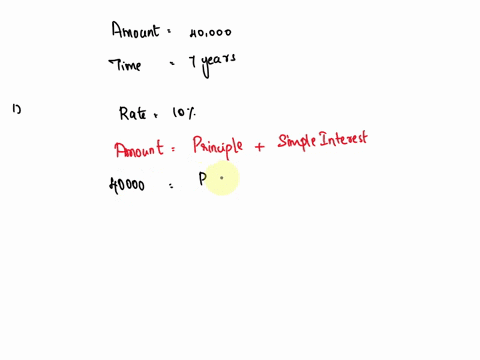 Amount = 40,000
Time = 7 years
1) Rate = 10%
Amount = Principle + Simple Interest
40000 = P